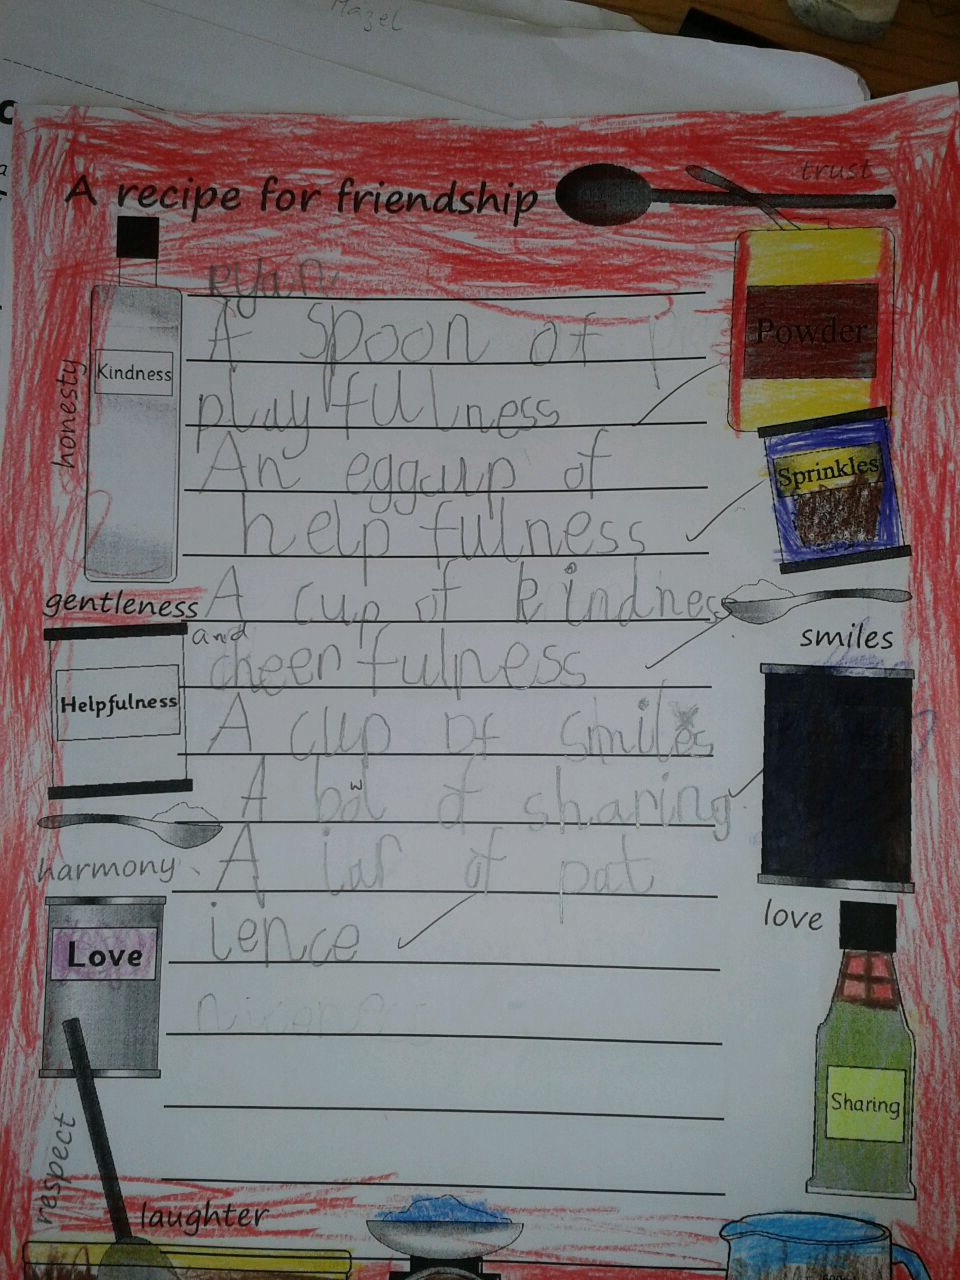 Mazel
trust
A recipe for friendship
Ryan
A spoon of
Powder
Kindness
honesty
playfulness
An eggcup of
Sprinkles
helpfulness
A cup of kindness
gentleness
and
cheerfulness
smiles
Helpfulness
A cup of smiles
A bowl of sharing
harmony
A jar of pat
ience
love
Love
Sharing
respect
laughter